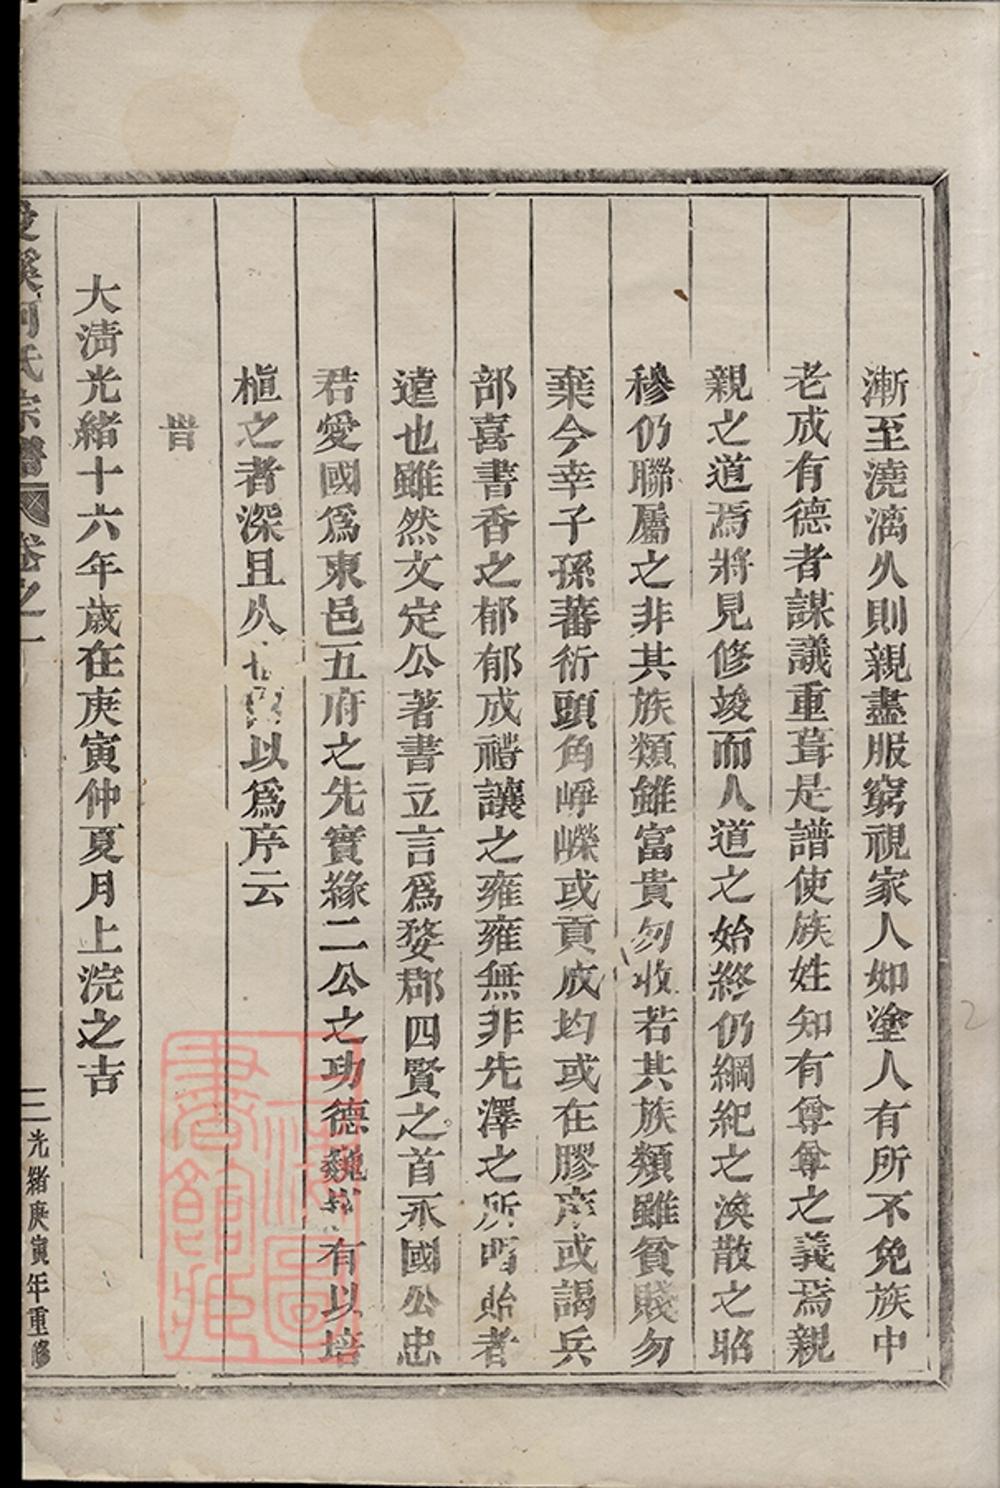 漸至澆漓久則親盡服窮視家人如塗人有所不免族中
老成有德者謀議重葺是譜使族姓知有尊尊之義焉親
親之道焉將見修竣而人道之始終仍綱紀之渙散之昭
穆仍聯屬之非其族類雖富貴勿收若其族類雖貧賤勿
棄今幸子孫蕃衍頭角崢嶸或貢成均或在膠庠或謁兵
部喜書香之郁郁成禮讓之雍雍無非先澤之所貽者
遠也雖然文定公著書立言爲婺郡四賢之首永國公忠
君愛國爲東邑五府之先實緣二公之功德巍有以培
植之者深且久以爲序云
旹
大清光緒十六年歲在庚寅仲夏月上浣之吉
溪何氏宗譜 卷之一 三 光緒庚寅年重修
上海圖書館藏